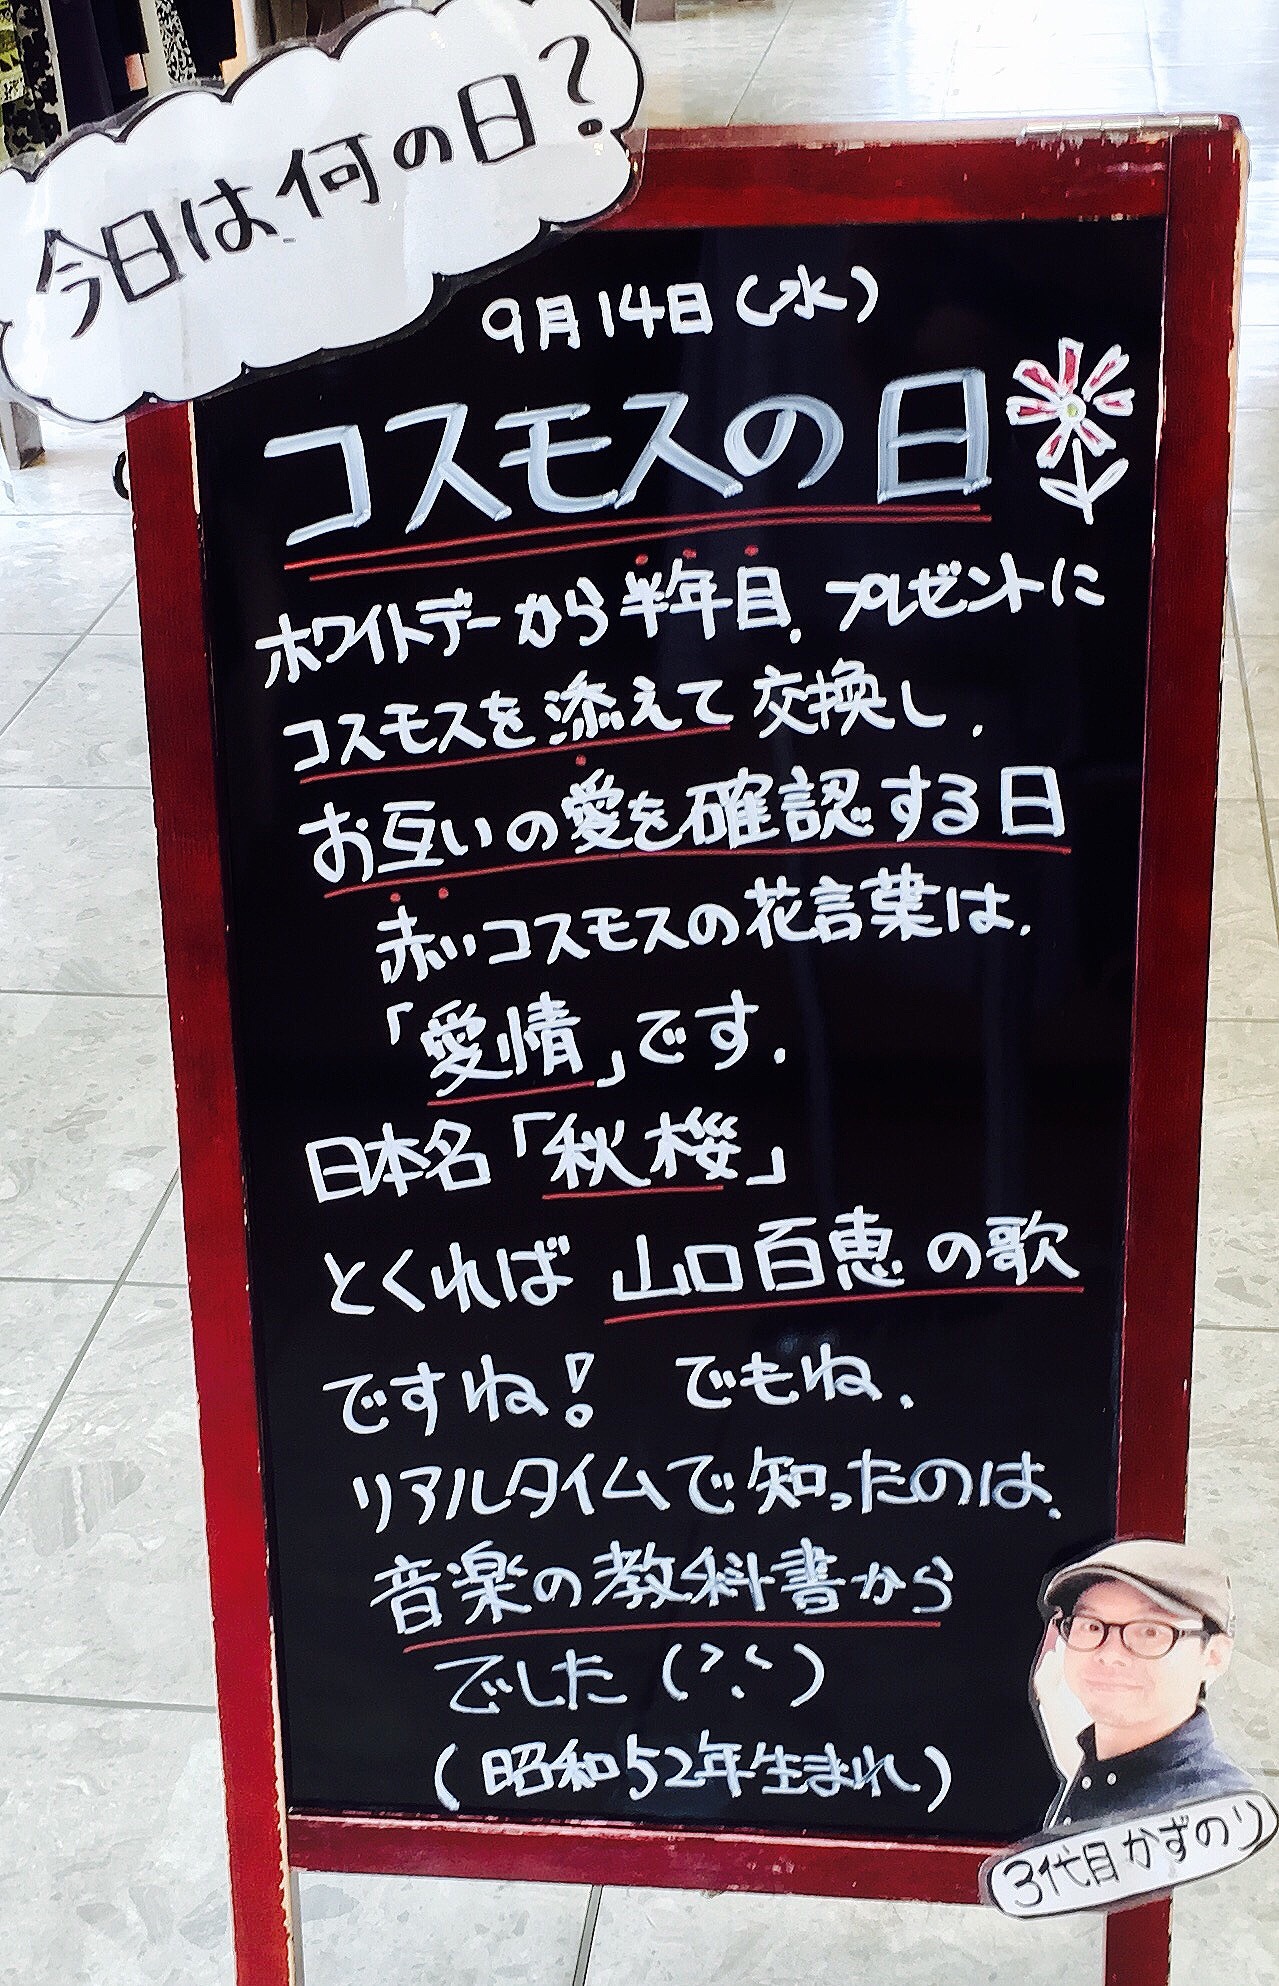 今日は何の日?
9月14日(水)
コスモスの日
ホワイトデーから半年目、プレゼントに
コスモスを添えて交換し、
お互いの愛を確認する日
赤いコスモスの花言葉は、
「愛情」です。
日本名「秋桜」
とくれば 山口百恵の歌
ですね! でもね、
リアルタイムで知ったのは、
音楽の教科書から
でした(?、)
(昭和52年生まれ)
3代目かずのり